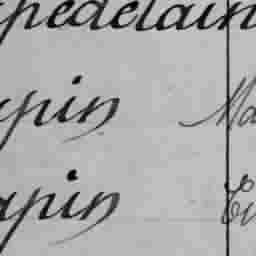 pédelain
apin Ma
apin